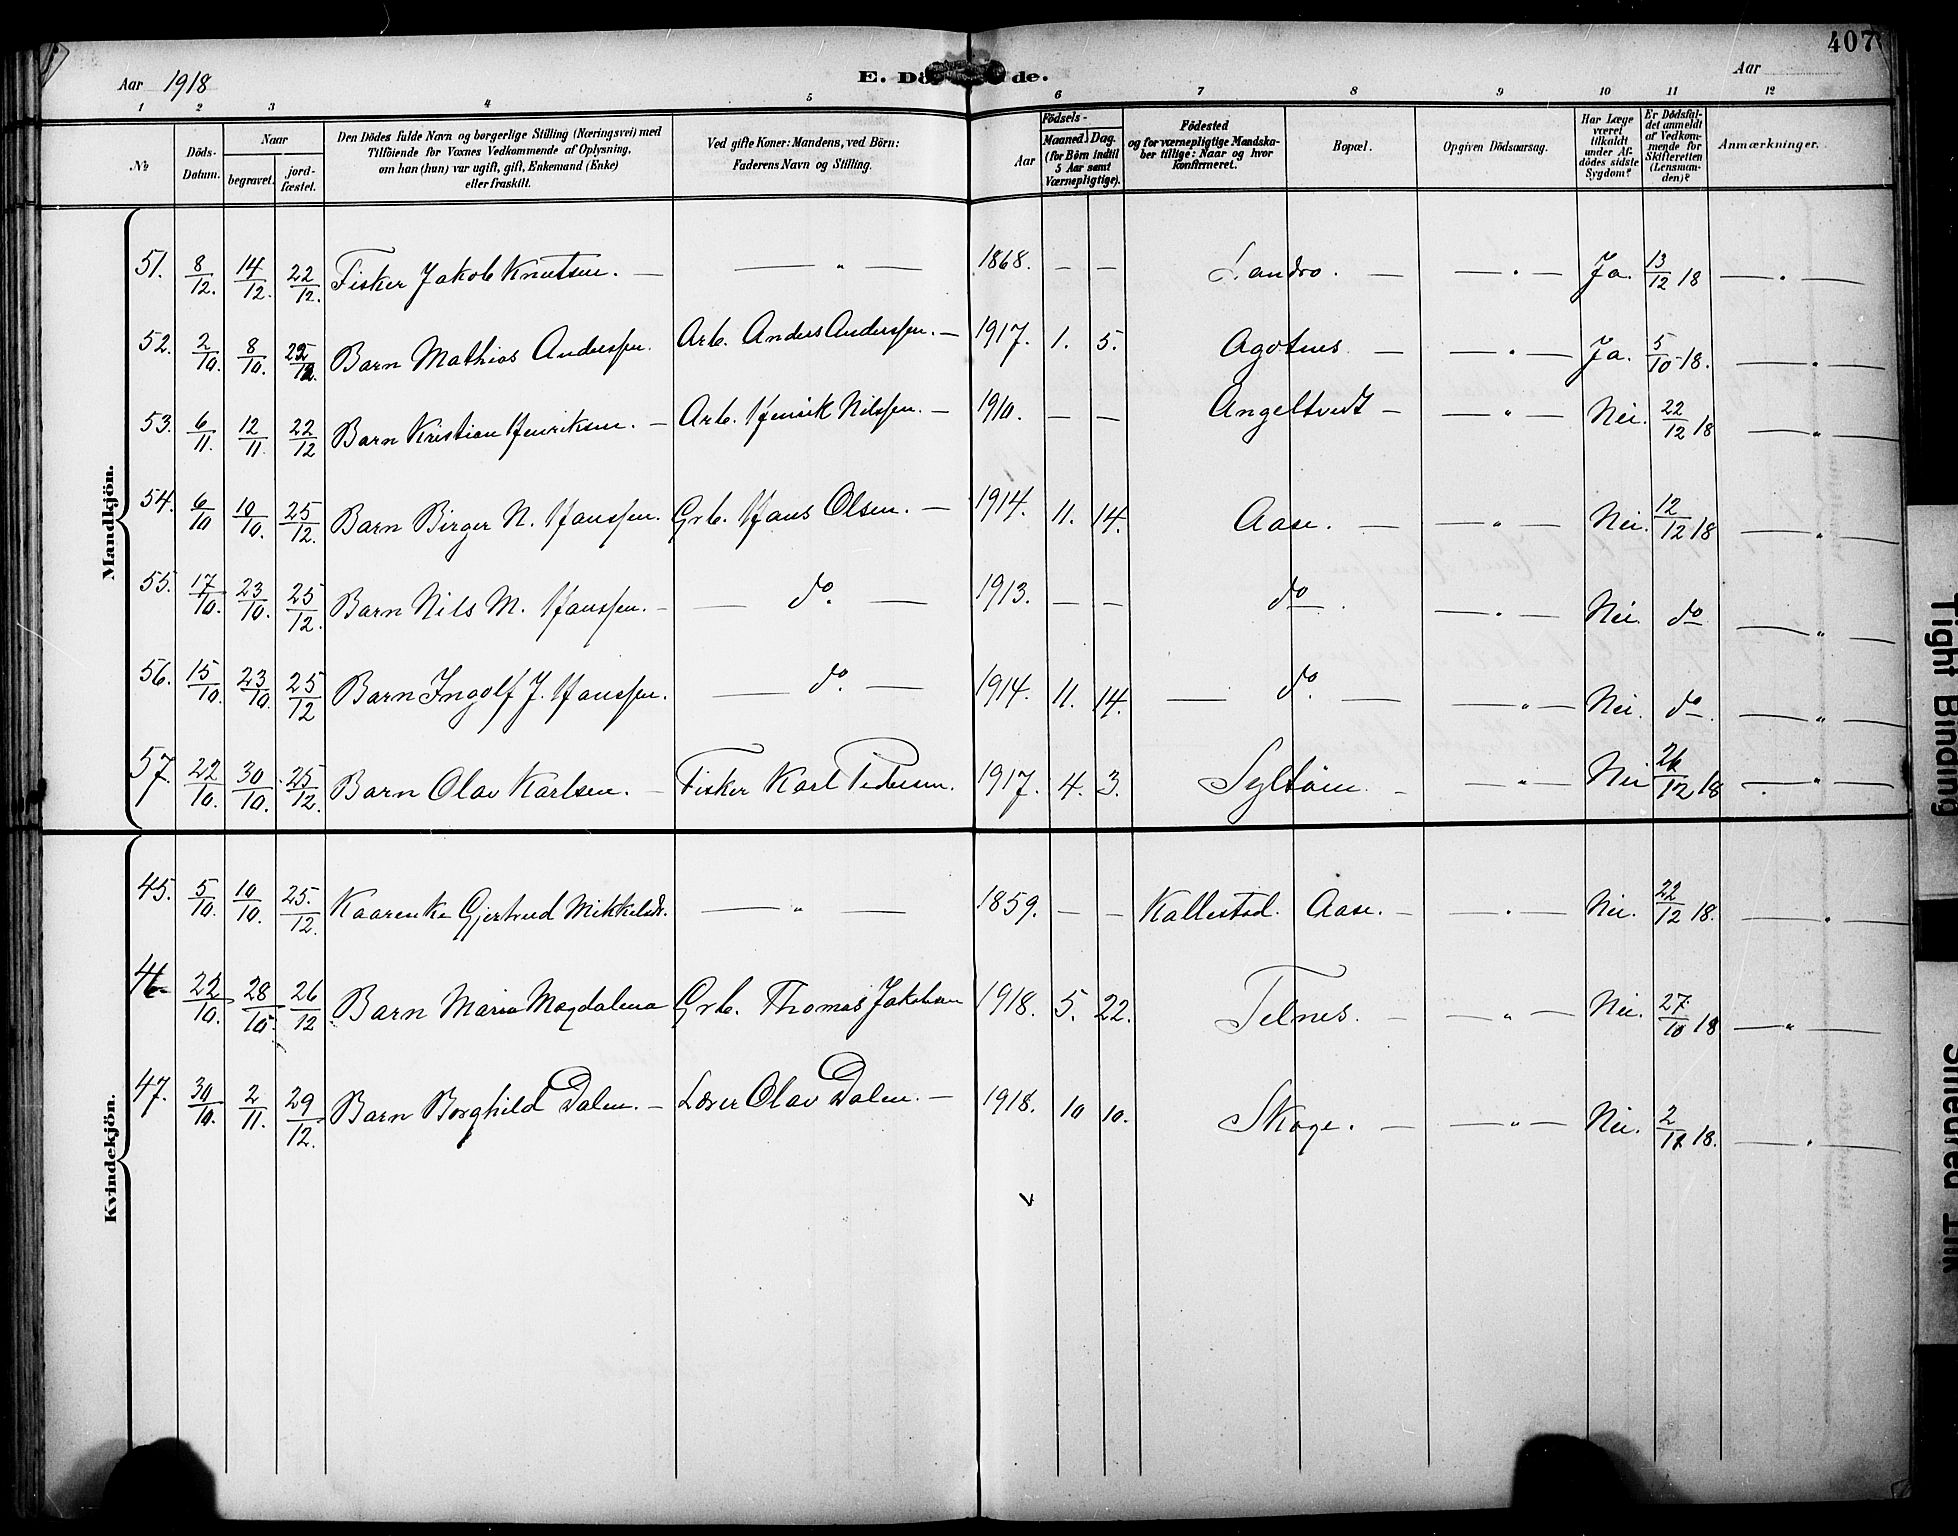 407
Aar 1918
E. Dö de.
Aar
1 2 3 4 5 6 7 8 9 10 11 12
№
Döds-Datum.
Naar
begravet.
jord-fæstet.
Den Dödes fulde Navn og borgerlige Stilling (Næringsvei) med
Tilföiende for Voxnes Vedkommende af Oplysning,
om han (hun) var ugift, gift, Enkemand (Enke)
eller fraskilt.
Ved gifte Koner: Mandens, ved Börn:
Faderens Navn og Stilling.
Födsels-
Aar
Maaned. Dag.
(for Börn indtil
5 Aar samt
Værnepligtige).
Födested
og for værnepligtige Mandska-
ber tillige: Naar og hvor
konfirmeret.
Bopæl.
Opgiven Dödsaarsag.
Har Læge
været
tilkaldt
under Af-
dödes sidste
Sygdom?
Er Dödsfal-
det anmeldt
af Vedkom-
mende for
Skifteretten
(Lensman-
den)?
Anmærkninger.
Mandkjön.
51. 8/12. 14/12. 22/12. Fisker Jakob Knutsen. — — „ — 1868. — — Landro. — — „ — Ja. 13/12 18 — „ —
52. 2/10. 8/10. 22/12. Barn Mathias Anderssen. Arb. Anders Anderssen. — 1917. 1. 5. Agotnes — — „ — Ja. 5/10 - 18. — „ —
53. 6/11. 12/11. 22/12 Barn Kristian Henriksen. — Arb. Henrik Nilssen. — 1910. — — Angeltvedt — — „ — Nei. 22/12 18 — „ —
54. 6/10 10/10. 25/12. Barn Birger N. Hanssen. Grb. Hans Olsen. — 1914. 11. 14. Aase. — — „ — Nei. 12/12 18 — „ —
55. 17/10. 23/10. 25/12. Barn Nils M. Hanssen. — — do. — 1913. — — do. — „ — Nei. do — „ —
56. 15/10. 23/10. 25/12 Barn Ingolf J. Hanssen. — do. — 1914. 11. 14. — do. — — „ — Nei. do. — „ —
57. 22/10. 30/10. 25/12. Barn Olav Karlsen. — Fisker Karl Pedersen. 1917. 4. 3. Syltöen. — — „ — Nei 26/12 18 — „ —
Kvindekjön.
45. 5/10. 10/10. 25./12. Kaarenke Gjertrud Mikkelsdr. — „ — 1859. — — Kallestad. Aase. — — „ — Nei. 22/12 18. — „ —
46 22/10. 28/10. 26/12 Barn Maria Magdalena Grb. Thomas Jakobsen 1918. 5. 22. Telnes. — — „ — Nei. 27/10 18 — „ —
47. 30/10. 2/11. 29/12. Barn Borghild Dalen. — Lærer Olav Dalen. — 1918. 10 10. Skoge. — — „ — Nei. 2/11 18. — „ —
Tight Binding
Smeared Ink